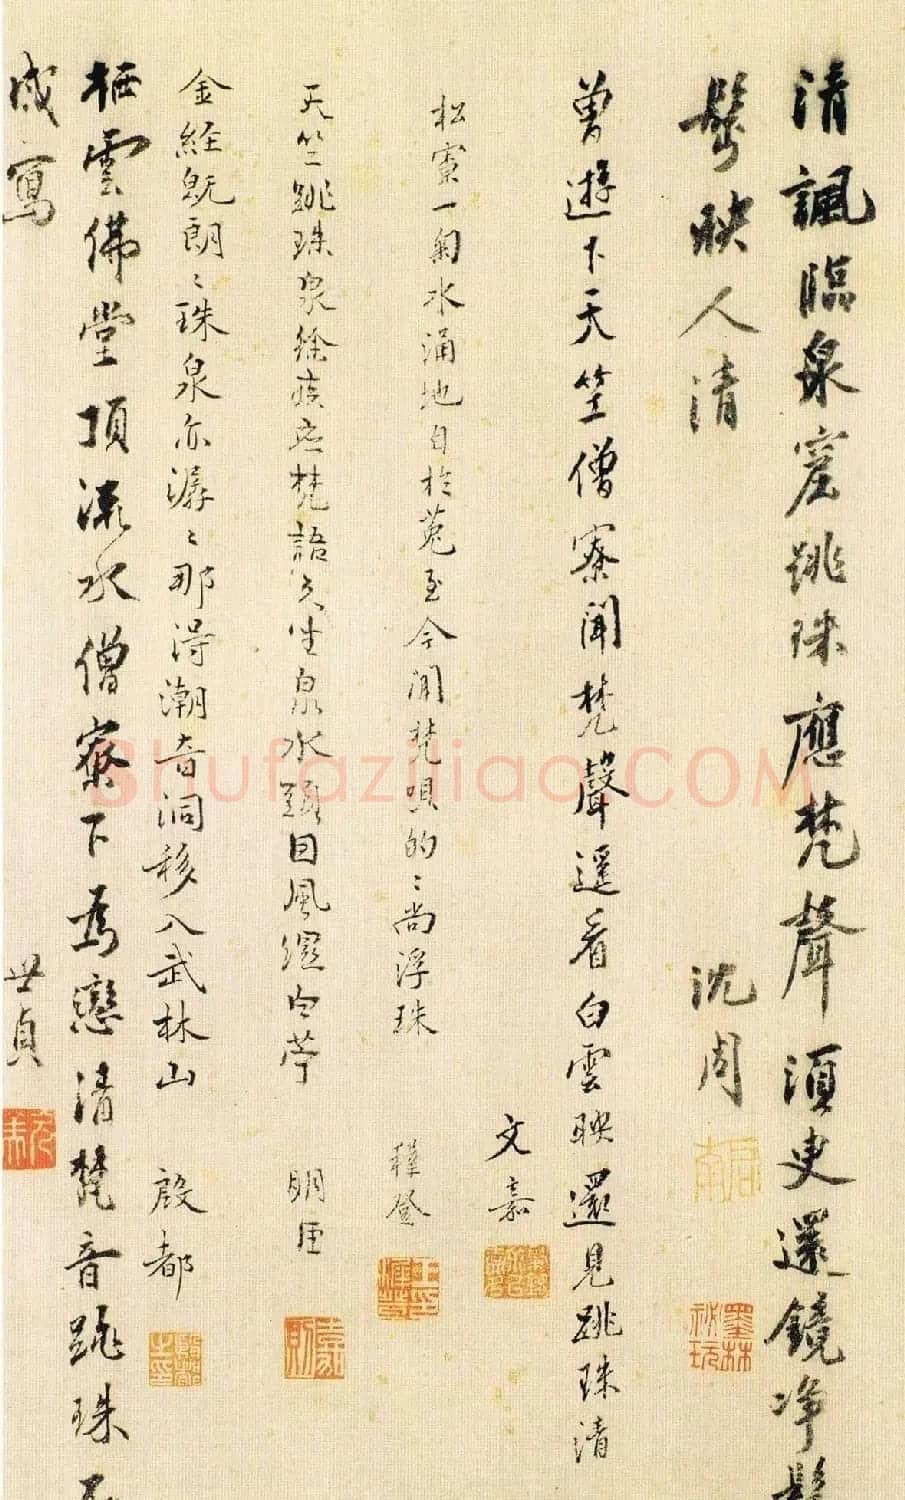 清諷臨泉窟跳珠應梵聲須臾還鏡净
髮映人清 沈周
启南
墨林祕玩
曾遊下天竺僧寮聞梵聲遥看白雲映還見跳珠清
文嘉
松寮一匊水涌地自於菟至今聞梵唄的〻尚浮珠 穉登
天竺跳珠泉徐疾应梵語久坐泉水頭因風濕白苧 明臣
嘉則
金經既朗〻珠泉亦潺〻那得潮音洞移入武林山 殷都
栖雲佛堂頂流水僧寮下為戀清梵音跳珠不
成寫 世貞
元美
Shufaziliao.COM